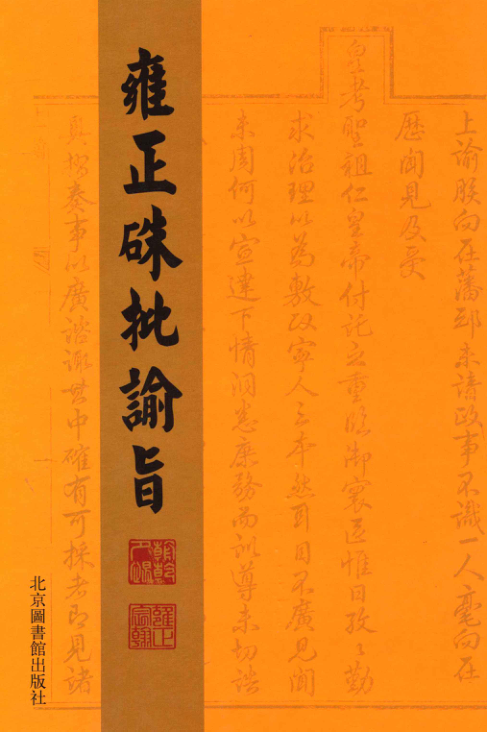 上諭朕向在藩邸未諳政事不識一人毫
歷聞見及受
皇考聖祖仁皇帝付託之重臨御寰區惟日孜〻勤
求治理以為敷政寧人之本然耳目不廣見聞
未周何以宣達下情洞悉庶務而訓導未切誥
雍正硃批諭旨
朝乾夕惕
雍正宸翰
具摺奏事以廣諮諏其中確有可採者即見諸
北京圖書館出版社